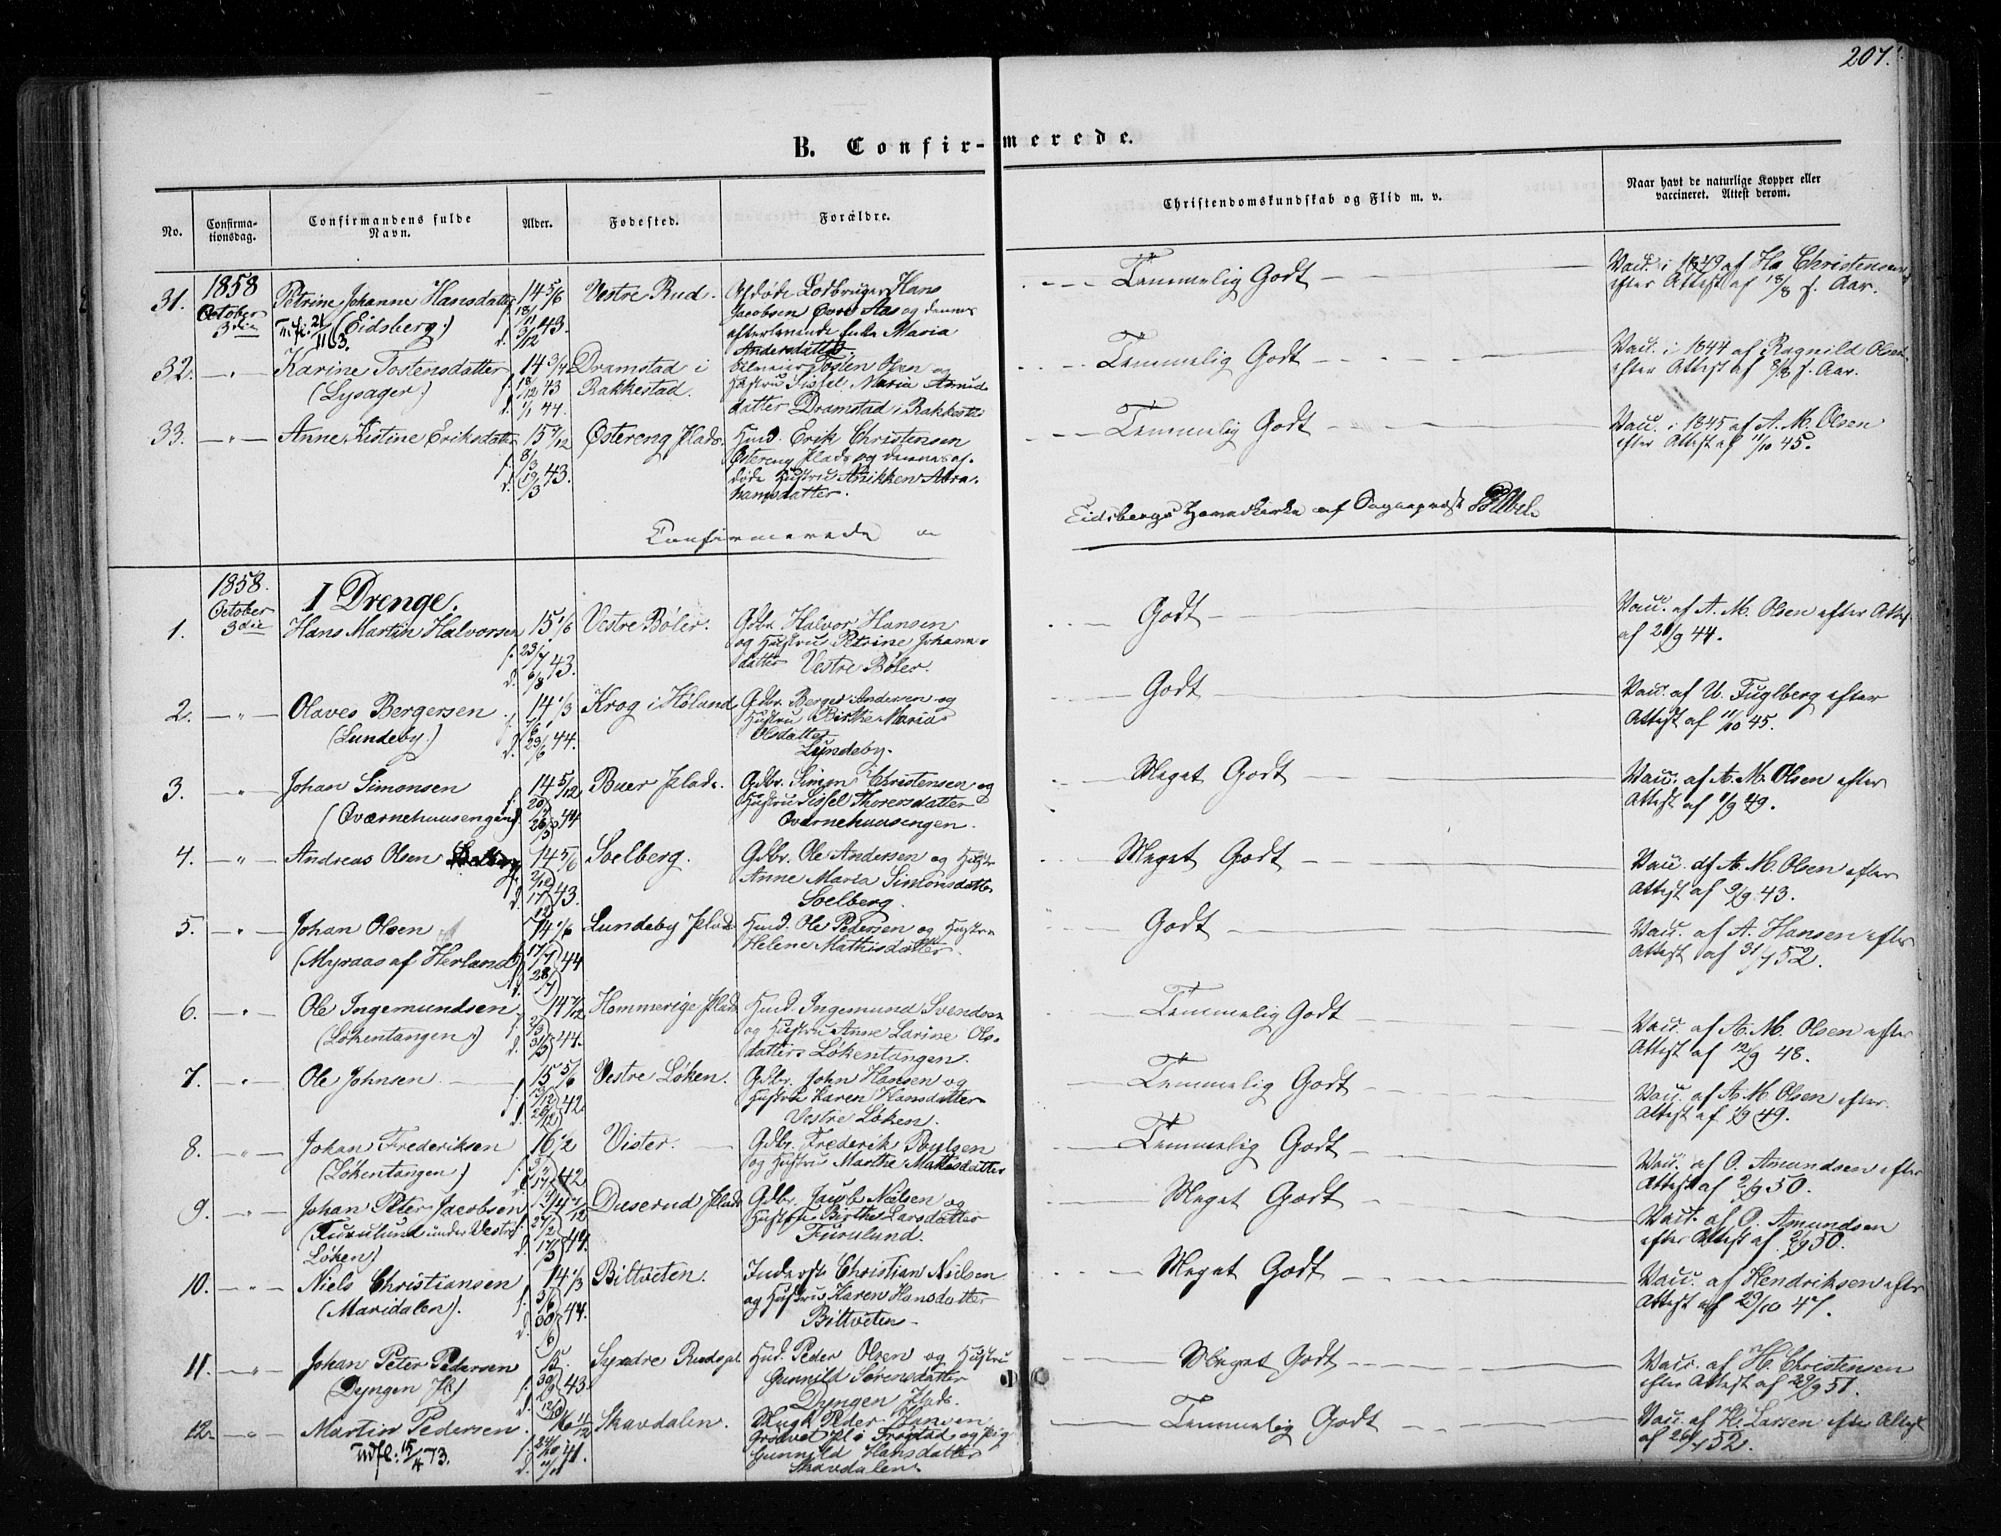 207.
B. Confir-merede.
No.
Confirma-
tionsdag.
Confirmandens fulde
Navn.
Alder.
Fødested.
Forældre.
Christendomskundskab og Flid m. v.
Naar havt de naturlige Kopper eller
vaccineret. Attest derom.
1858
October
3die
31.
Petrine Johanne Hansdatter
(Eidsberg.)
14 5/6
f. 18/11
d. 3/12 43.
Vestre Rud.
Hans
Jacobsen Øvre Aas og dennes
efterlevende Enke Maria
Andersdatter
Temmelig Godt
Vacc. i 1849 af Ha Christensen
efter Attest af 18/8 s. Aar.
32.
Karine Tostensdatter
(Lysager.)
14 3/4
f. 18/12 43
d. 1/1 44.
Dramstad i
Rakkestad.
Tosten Olsen og
Hustru Sissel Maria
datter Dramstad i Rakkestad
Temmelig Godt
Vacc. i 1844 af Ragnild Olsen
efter Attest af 8/8 s. Aar.
33.
Anne Kistine Eriksdatter
15 7/12
f. 8/3
d. 19/3 43.
Østereng Plads.
Husd. Erik Christensen
Østereng Plads og dennes af-
døde Hustru Anikken Abra-
hamsdatter.
Temmelig Godt
Vacc. i 1845 af A. M. Olsen
efter Attest af 11/10 45.
Confirmerede
Eidsbergs Hovedkirke af Sognepræst
1858.
October
3die
I Drenge.
1.
Hans Martin Halvorsen
15 1/6
f. 23/7
d. 6/8 43.
Vestre Bøler.
Gdbr. Halvor Hansen
og Hustru Petrine Johannes-
datter Vestre Bøler.
Godt
Vacc. af A. M. Olsen efter Attest
af 20/9 44.
2.
Olaves Bergersen
(Lundeby.)
14 1/3
44.
Krog i Høland
Gdbr. Berger Andersen og
Hustru Birthe Maria
Olsdatter
Lundeby.
Godt
Vacc. af U. Fuglberg efter
Attest af 11/10 45.
3.
Johan Simonsen
(Qværnehuusengen)
14 5/12
44
Buer Plads.
Gdbr. Simon Christensen og
Hustru Sissel Thorersdatter
Qværnehuusengen.
Meget Godt
Vacc. af A. M. Olsen efter
Attest af 1/9 49.
4.
Andreas Olsen
14 5/6
f. 2/12
d. 17/12 43.
Soelberg.
Gdbr. Ole Andersen og Hustru
Anne Maria Simonsdatter
Soelberg.
Meget Godt
Vacc. af A. M. Olsen efter
Attest af 9/9 43.
5.
Johan Olsen
(Myraas af Herland)
14 1/6
f. 17/7
d. 28/7 44
Lundeby Plads
Husd. Ole Pedersen og Hustru
Helene Mathisdatter.
Godt
Vacc. af A. Hansen efter
Attest af 31/7 52.
6.
Ole Ingemundsen
(Løkentangen.)
14 7/12
f. 2/3
d. 31/3 44.
Hommerige Plads
Husd. Ingemund Svendsen
og Hustru Anne Larine Ols-
datter Løkentangen.
Temmelig Godt
Vacc. af A. M. Olsen efter
Attest af 12/9 48.
7.
Ole Johnsen
15 5/6
f. 3/12
d. 26/12 42.
Vestre Løken.
Gdbr. John Hansen og
Hustru Karen Hansdatter
Vestre Løken.
Temmelig Godt
Vacc. af A. M. Olsen efter
Attest af 1/9 49.
8.
Johan Frederiksen
(Løkentangen)
16 1/2
42
Vister.
Gdbr. Frederik Poulsen
og Hustru Marthe Mathisdatter
Temmelig Godt
Vacc. af O. Amundsen efter
Attest af 2/9 50.
9.
Johan Peter Jacobsen
(Furulund under Vestre
Løken)
14 7/12
f. 24/2
d. 17/3 44.
Duserud Plads
Gdbr. Jacob Nielsen og
Hustru Birthe Larsdatter
Furulund.
Meget Godt
Vacc. af O. Amundsen
efter Attest af 2/9 50.
10.
Niels Christiansen
(Maridalen).
14 1/3
f. 5/6
d. 30/6 44.
Biltveten.
Inderste Christian Nielsen
og Hustru Karen Hansdatter
Biltveten
Meget Godt
Vacc. af Hendriksen efter
Attest af 29/10 47.
11.
Johan Peter Pedersen
(Dyngen Pl.)
15.
43.
Syndre Rudspl.
Husd. Peder Olsen og Hustru
Gunnild Sørensdatter
Dyngen Plads.
Meget Godt
Vacc. af H. Christensen
efter Attest af 29/9 51.
12.
Martin Pedersen.
Udfl: 15/4 73.
16 11/12
41.
Skavdalen.
Peder Hansen
i Trøgstad og Pige
Gunnild Hansdatter
Skavdalen
Temmelig Godt
Vacc. af H. Larsen efter Attest
af 26/7 52.